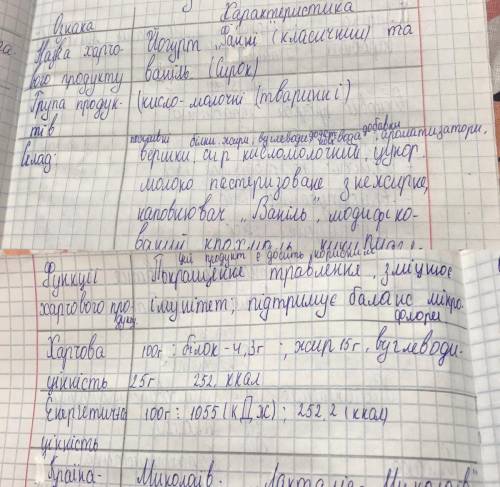 Ознака Характеристика
Назва харчо- Йогурт „Фанні" (класичний) та
вого продукту ваніль (сирок)
Група продук- (кисло-молочні (тваринні)
тів
білки, жири, вуглеводи вода добавки
Склад: вершки, сир кисломолочний, цукор ароматизатори,
молоко пастеризоване знежирне,
наповнювач „Ваніль", модифіко-
ваний крохмаль
Цей продукт є досить корисним
Функції Покращення травлення, зміцнює
харчового про- імунітет; підтримує баланс мікро-
дукту флори
Харчова 100г: білок - 4,3г ; жир 15г, вуглеводи-
цінність 25г 252, ккал
Енергетична 100г: 1055 (кДж); 252,2 (ккал)
цінність
Країна- Миколаїв. Лакталіс-Миколаїв"